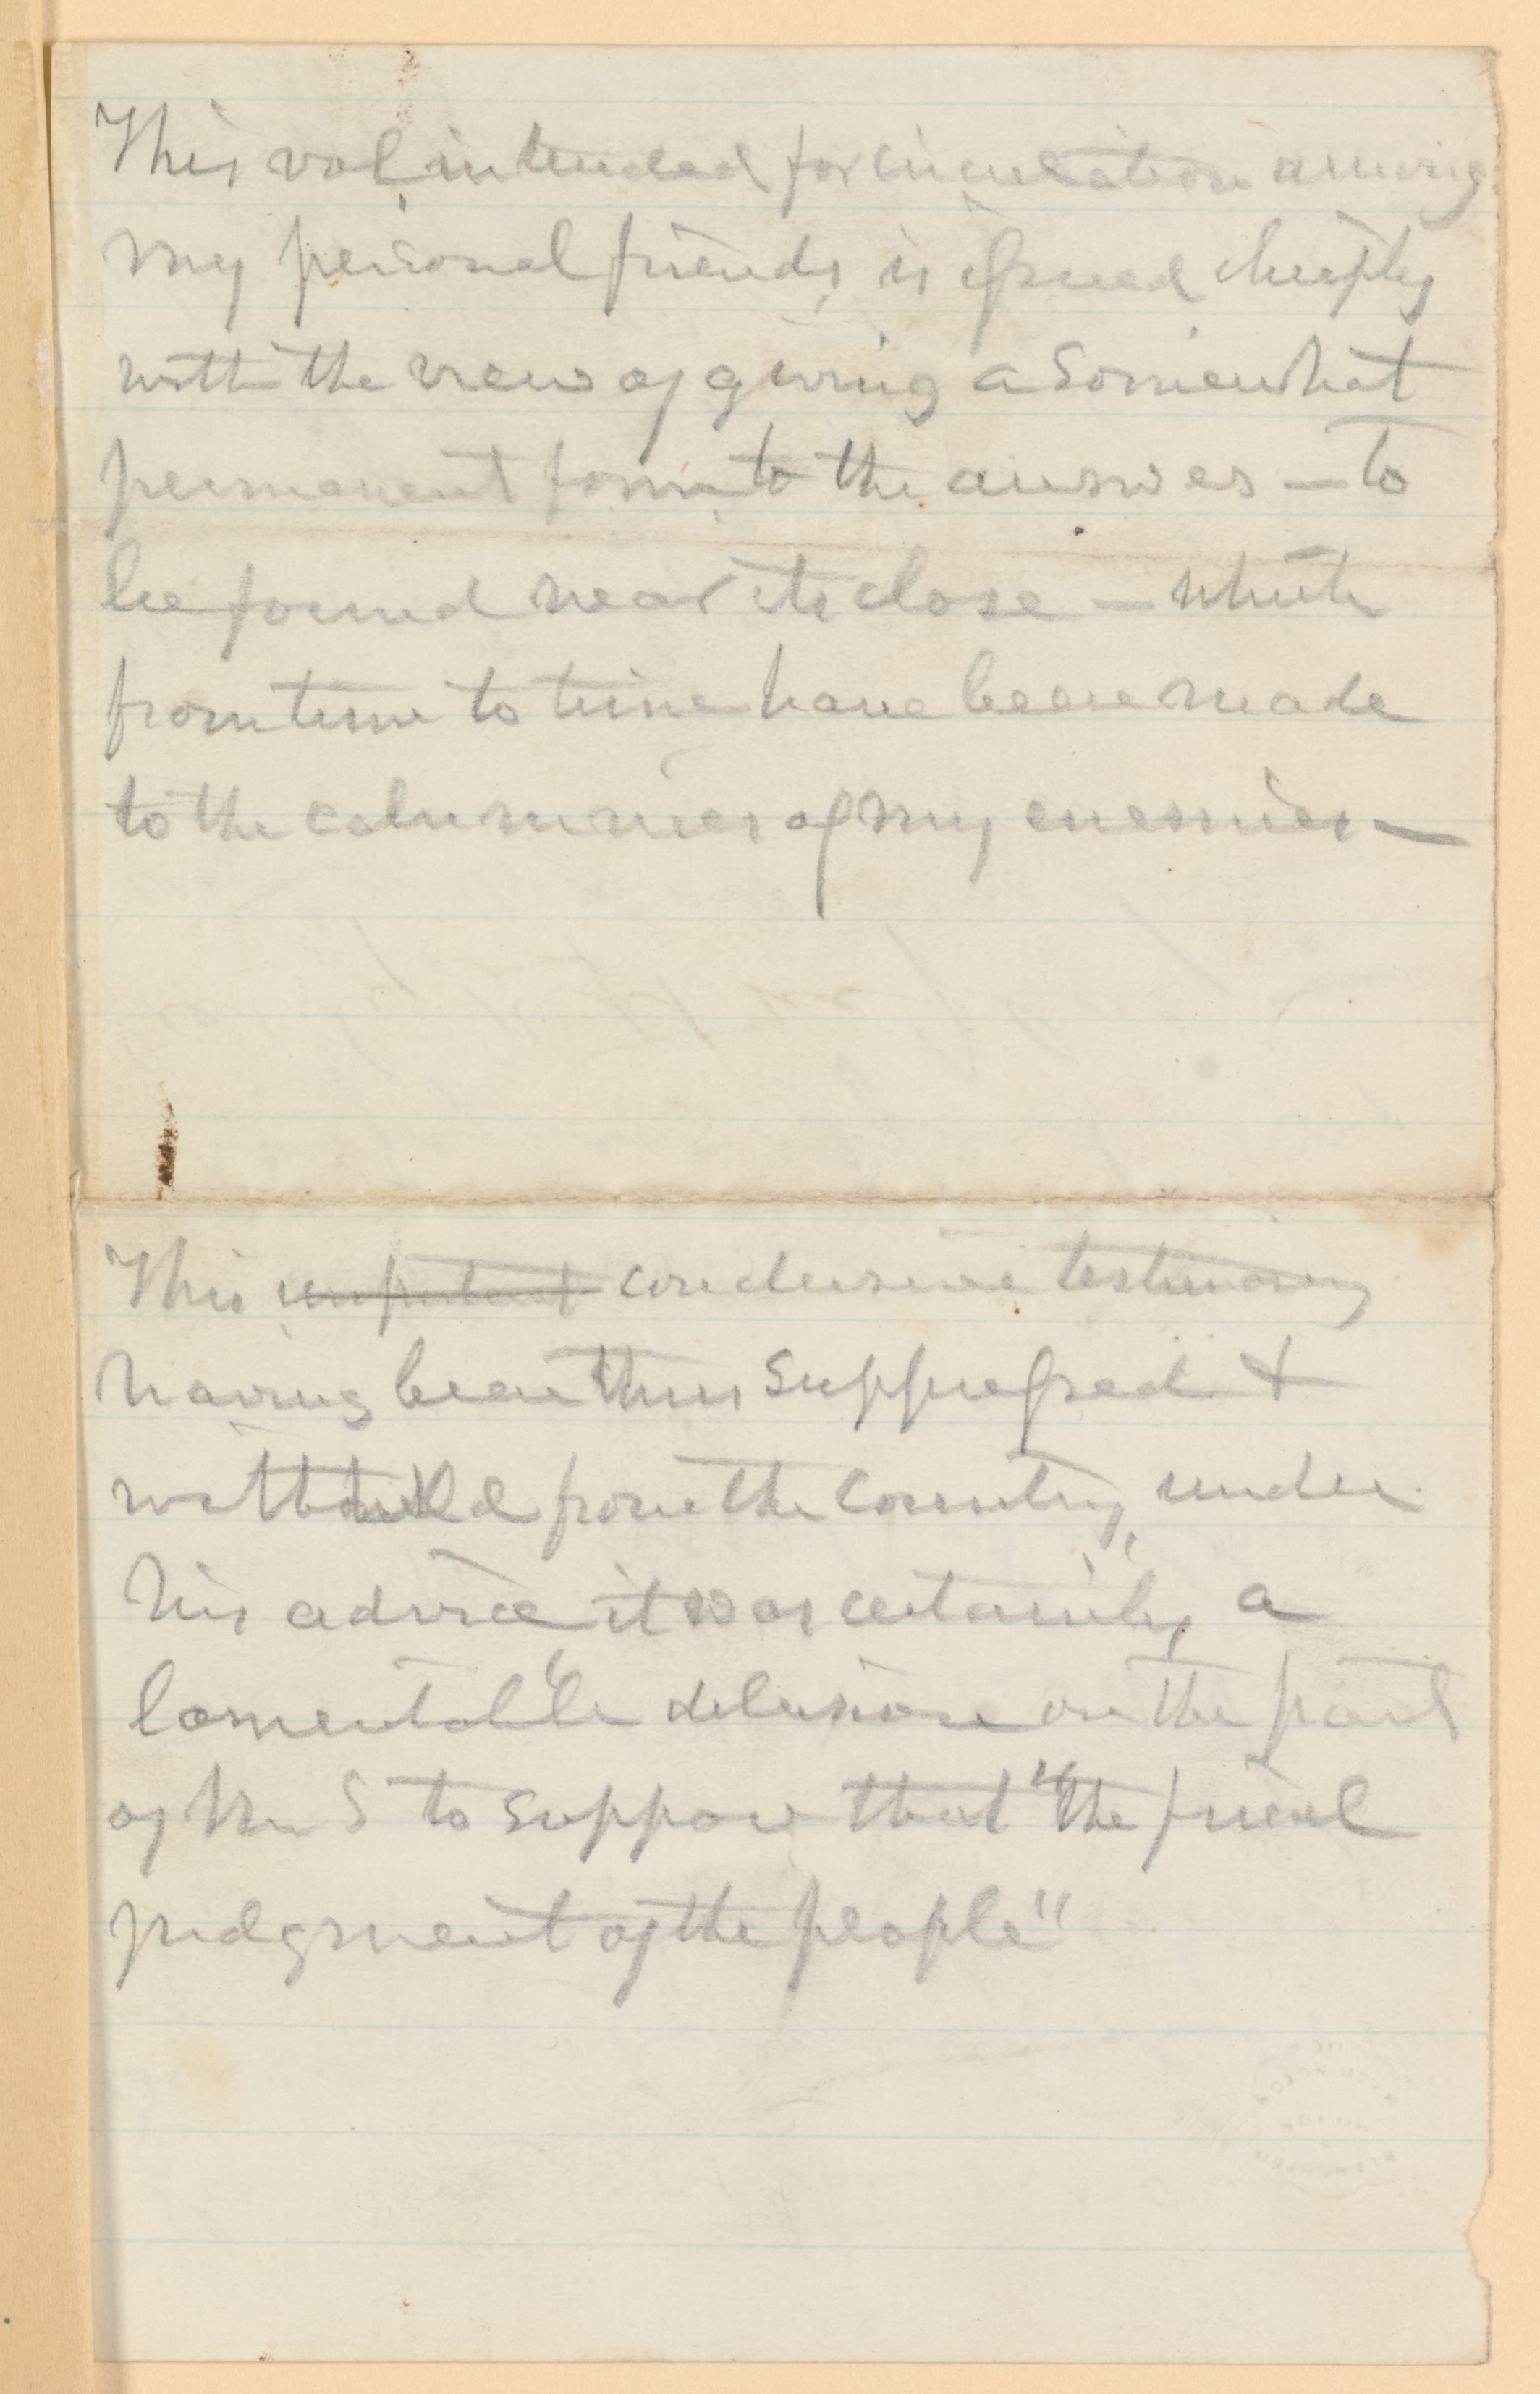 This vol, intended for circulation among
my personal friends, is issued chiefly
with the view of giving a somewhat
permanent form to the answers — to
be found near its close — which
from time to time have been made
to the calumnies of my enemies —
This important conclusive testimony
having been thus suppressed &
withheld from the Country, under
his advice it was certainly a
lamentable delusion on the part
of Mr S to suppose that "the final
judgment of the people"